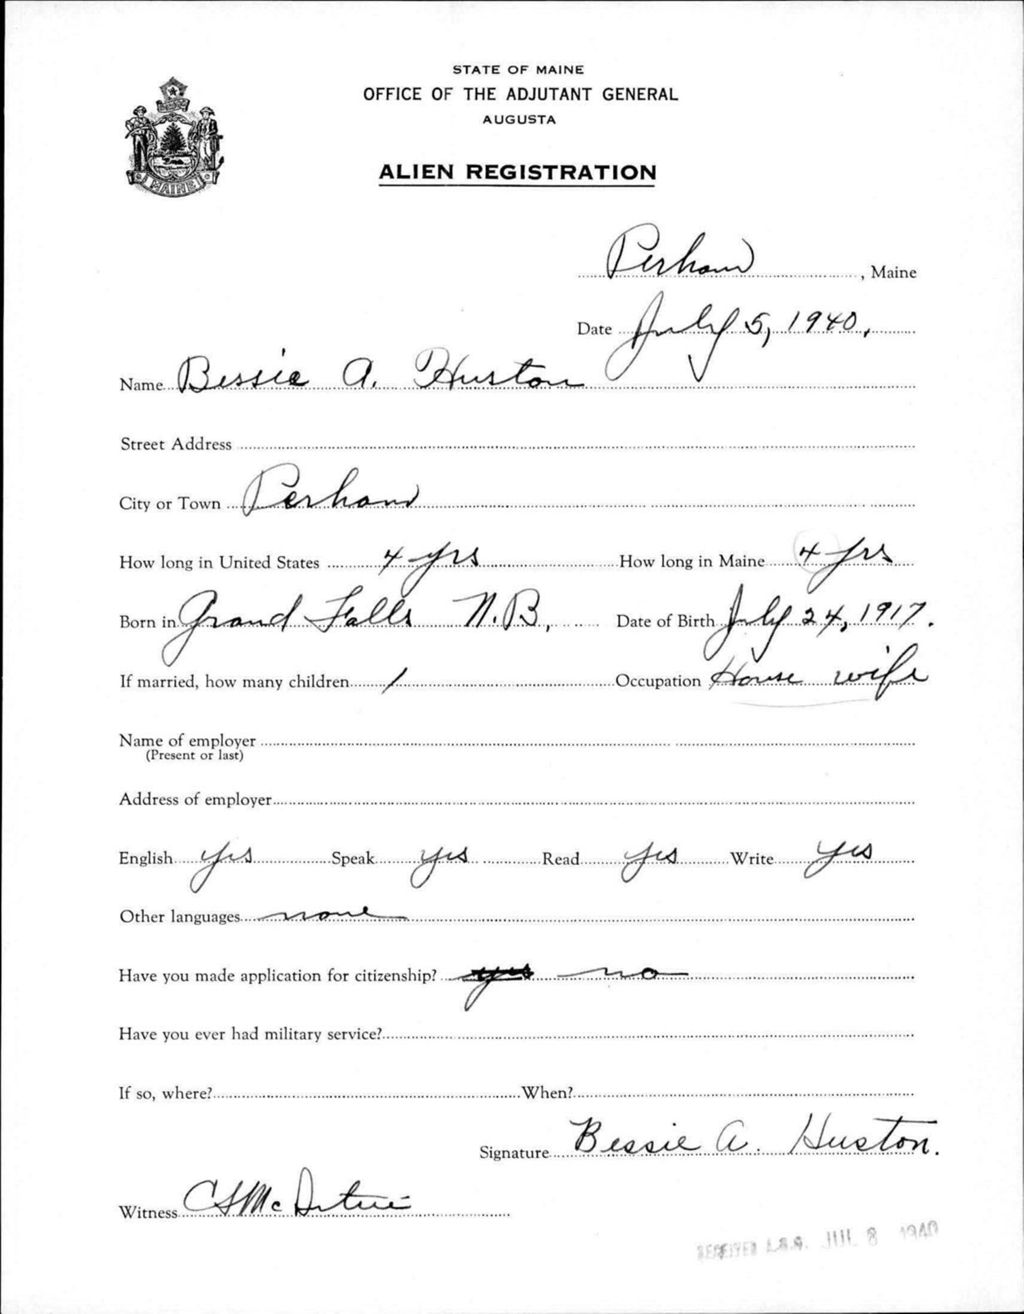 STATE OF MAINE
OFFICE OF THE ADJUTANT GENERAL
AUGUSTA
ALIEN REGISTRATION
MAINE
Perham, Maine
Date July 5, 1940.
Name Bessie A. Huston
Street Address
City or Town Perham
How long in United States 4 yrs How long in Maine 4 yrs
Born in Grand Falls N.B, Date of Birth July 24, 1917.
If married, how many children 1 Occupation House wife
Name of employer
(Present or last)
Address of employer
English yes Speak yes Read yes Write yes
Other languages none
Have you made application for citizenship? yes no
Have you ever had military service?
If so, where? When?
Signature Bessie A. Huston.
Witness
RECEIVED A.G.O. JUL 8 1940